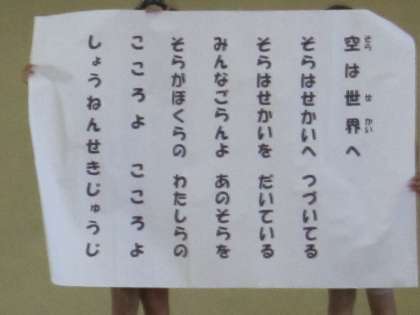 空は世界へ
そらはせかいへ つづいてる
そらはせかいを だいている
みんなごらんよ あのそらを
そらがぼくらの わたしらの
こころよ こころよ
しょうねんせきじゅうじ